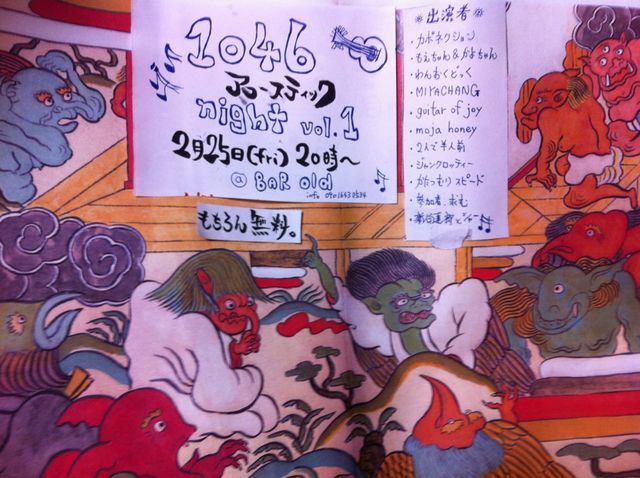 1046
アコースティック
night vol.1
2月25日(fri)20時〜
@ BAR old
info
もちろん無料。
出演者
・カポネクション
・もえちゃん&かよちゃん
・わんおくどっく
・MIYACHANG
・guitar of joy
・moja honey
・2人で半人前
・ジャンクロッティー
・かたつむりスピード
・参加者、求む